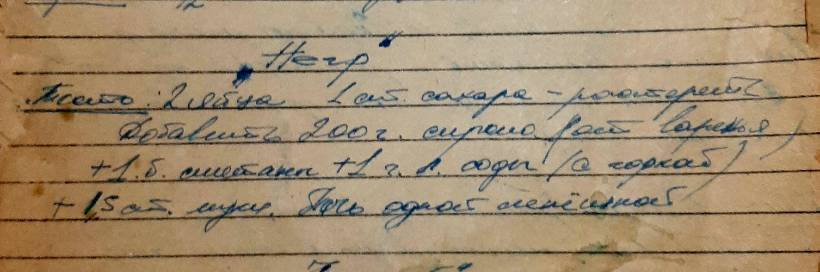 „Негр"
Тесто: 2 яйца 1 ст. сахара - растереть
Добавить 200 г. сиропа (от варенья)
+ 1 б. сметаны + 1 г. л. соды (с горкой)
+ 1,5 ст. муки. Печь одной лепёшкой